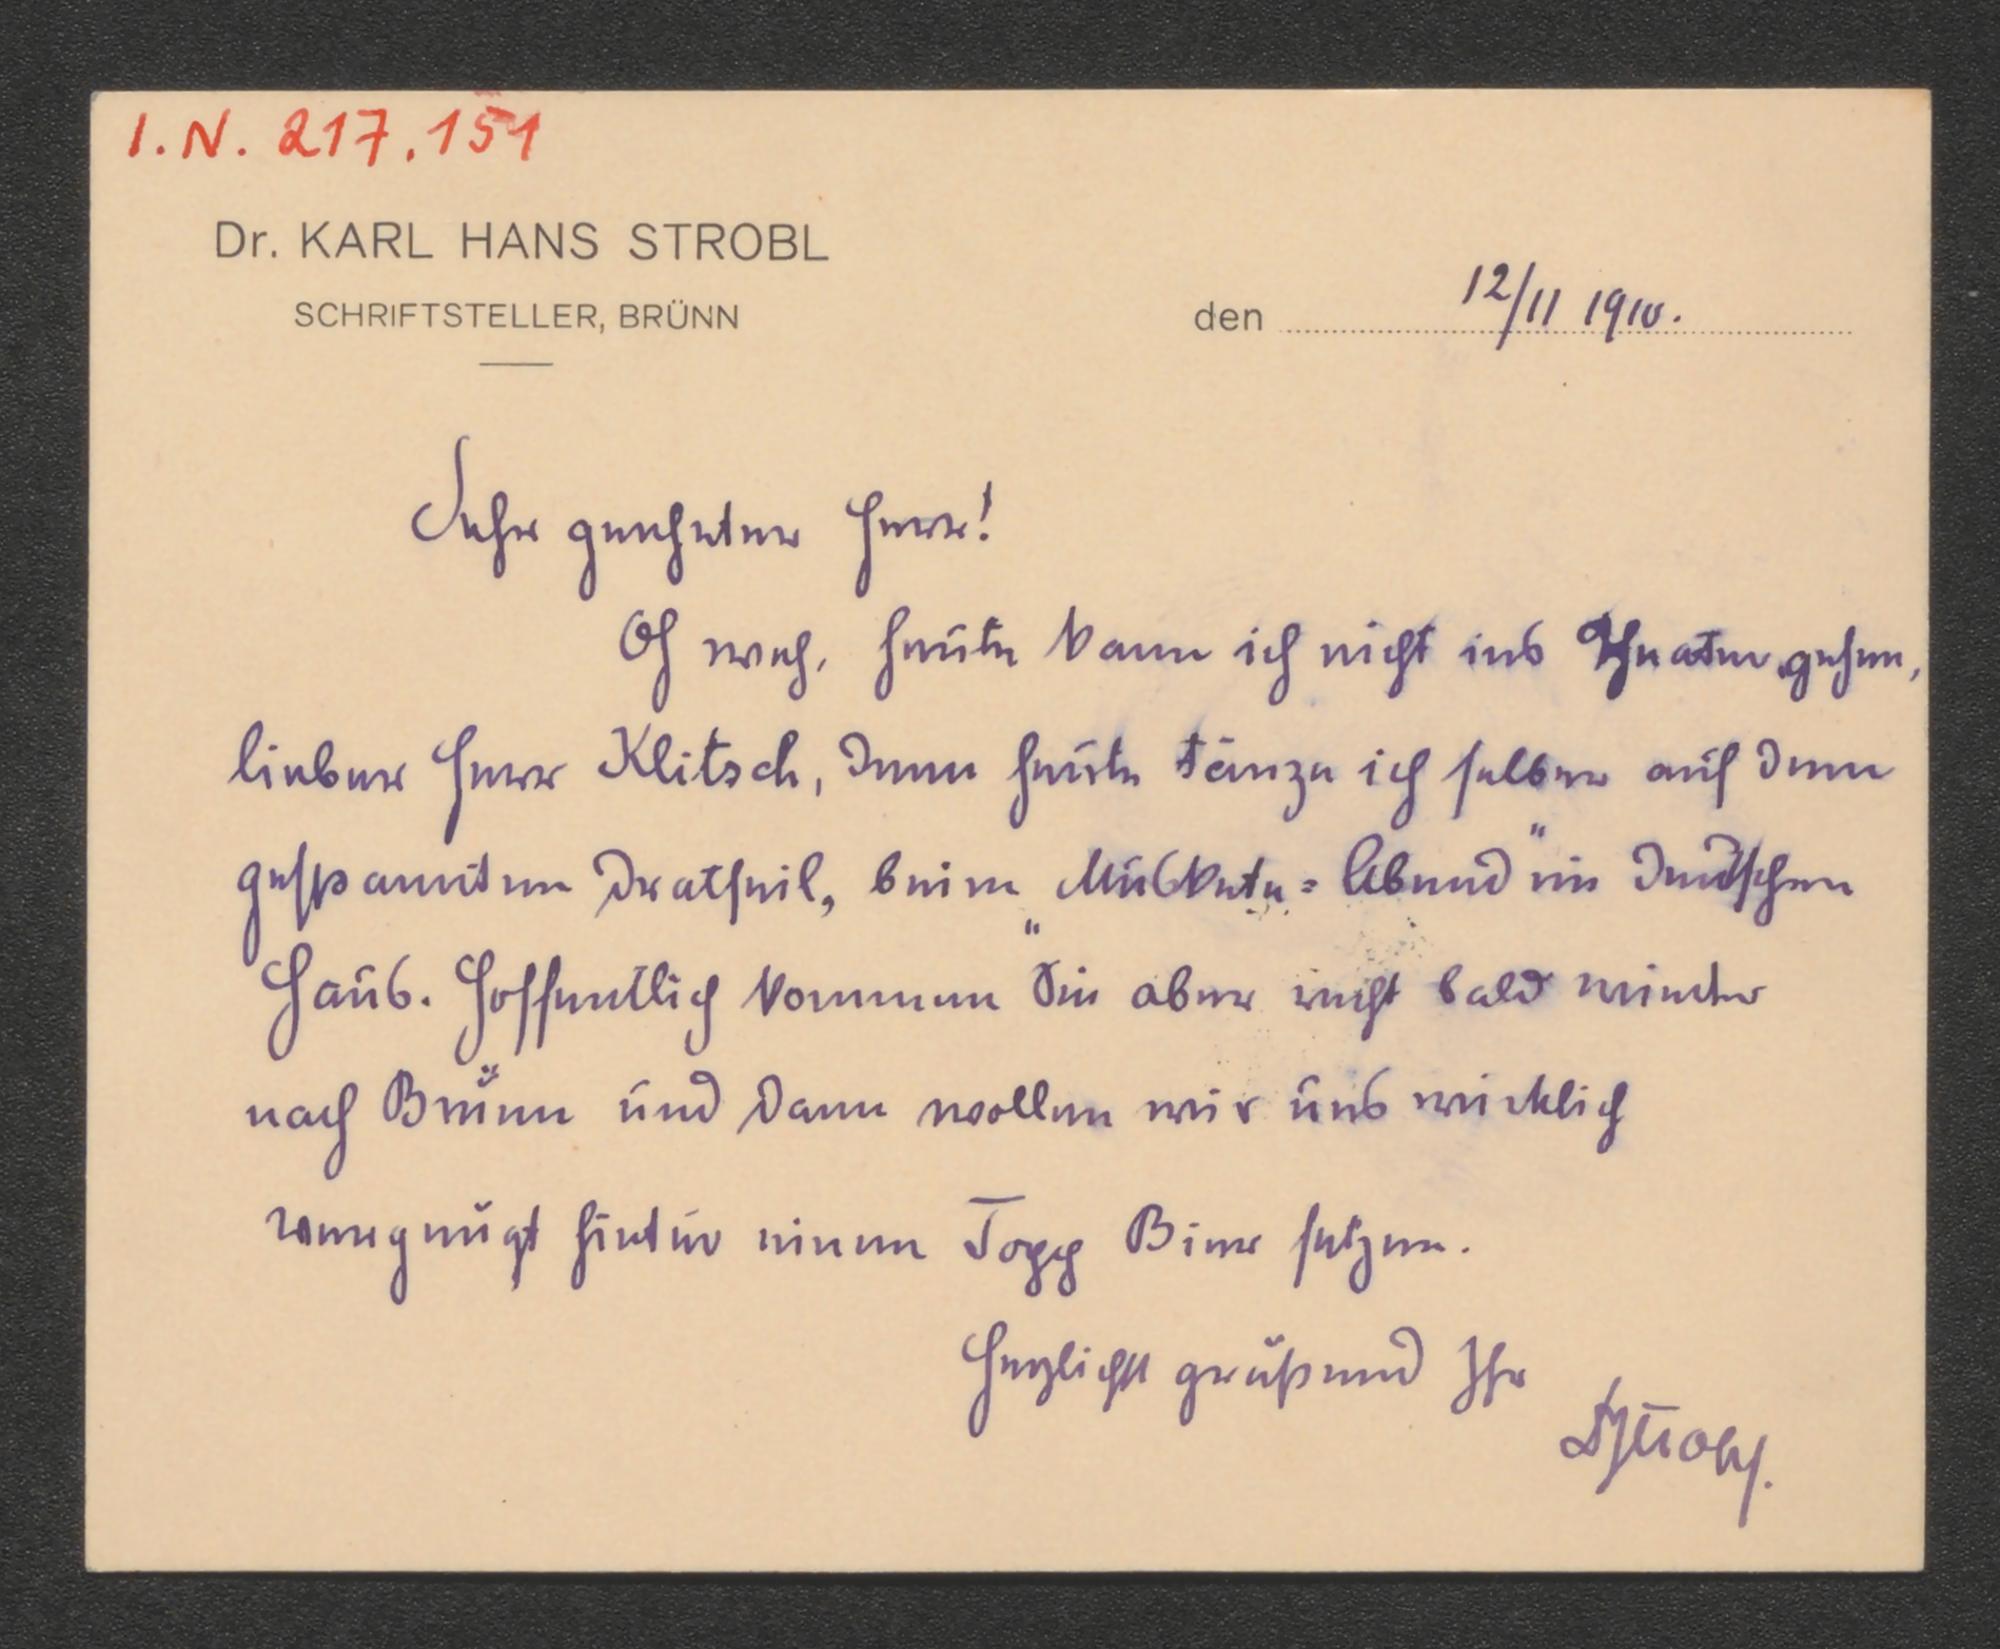 I.N. 217.151
Dr. KARL HANS STROBL
SCHRIFTSTELLER, BRÜNN
den 12/11 1910.
Sehr geehrter Herr!
Oh weh, heute kann ich nicht ins Theater gehen,
lieber Herr Klitsch, denn heute tänze ich selber auf dem
gespannten Dratseil, beim „Muskete-Abend" im Deutschen
Haus. Hoffentlich kommen Sie aber recht bald wieder
nach Brünn und dann wollen wir uns wirklich
vergnügt hinter einem Topp Bier setzen.
Herzlichst grüßend Ihr
Strobl.